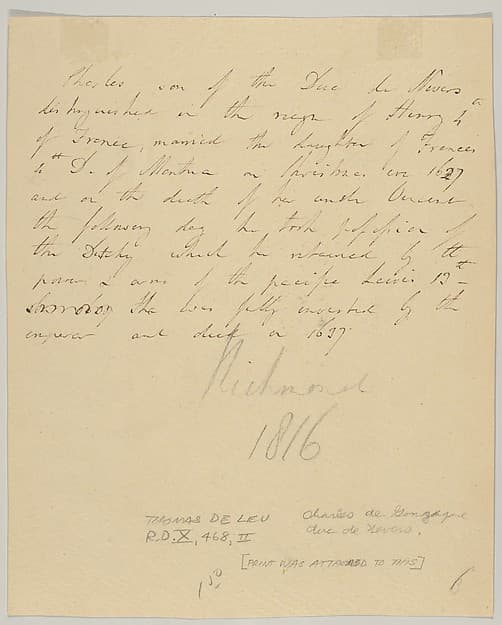 Charles son of the Duc de Nevers
distinguished in the reign of Henry 4th
of France, married the daughter of Francis
4th D. of Mantua on Christmas eve 1627
and on the death of her uncle Vincent
the following day he took possession of
the Dutchy which he retained by the
power & arms of the pacific Lewis 13th –
he was fully invested by the
emperor and died in 1637
Richmond
1816
THOMAS DE LEU
R.D. X, 468, II
Charles de Gonzague
duc de Nevers.
[PRINT WAS ATTACHED TO THIS]
1 50
6